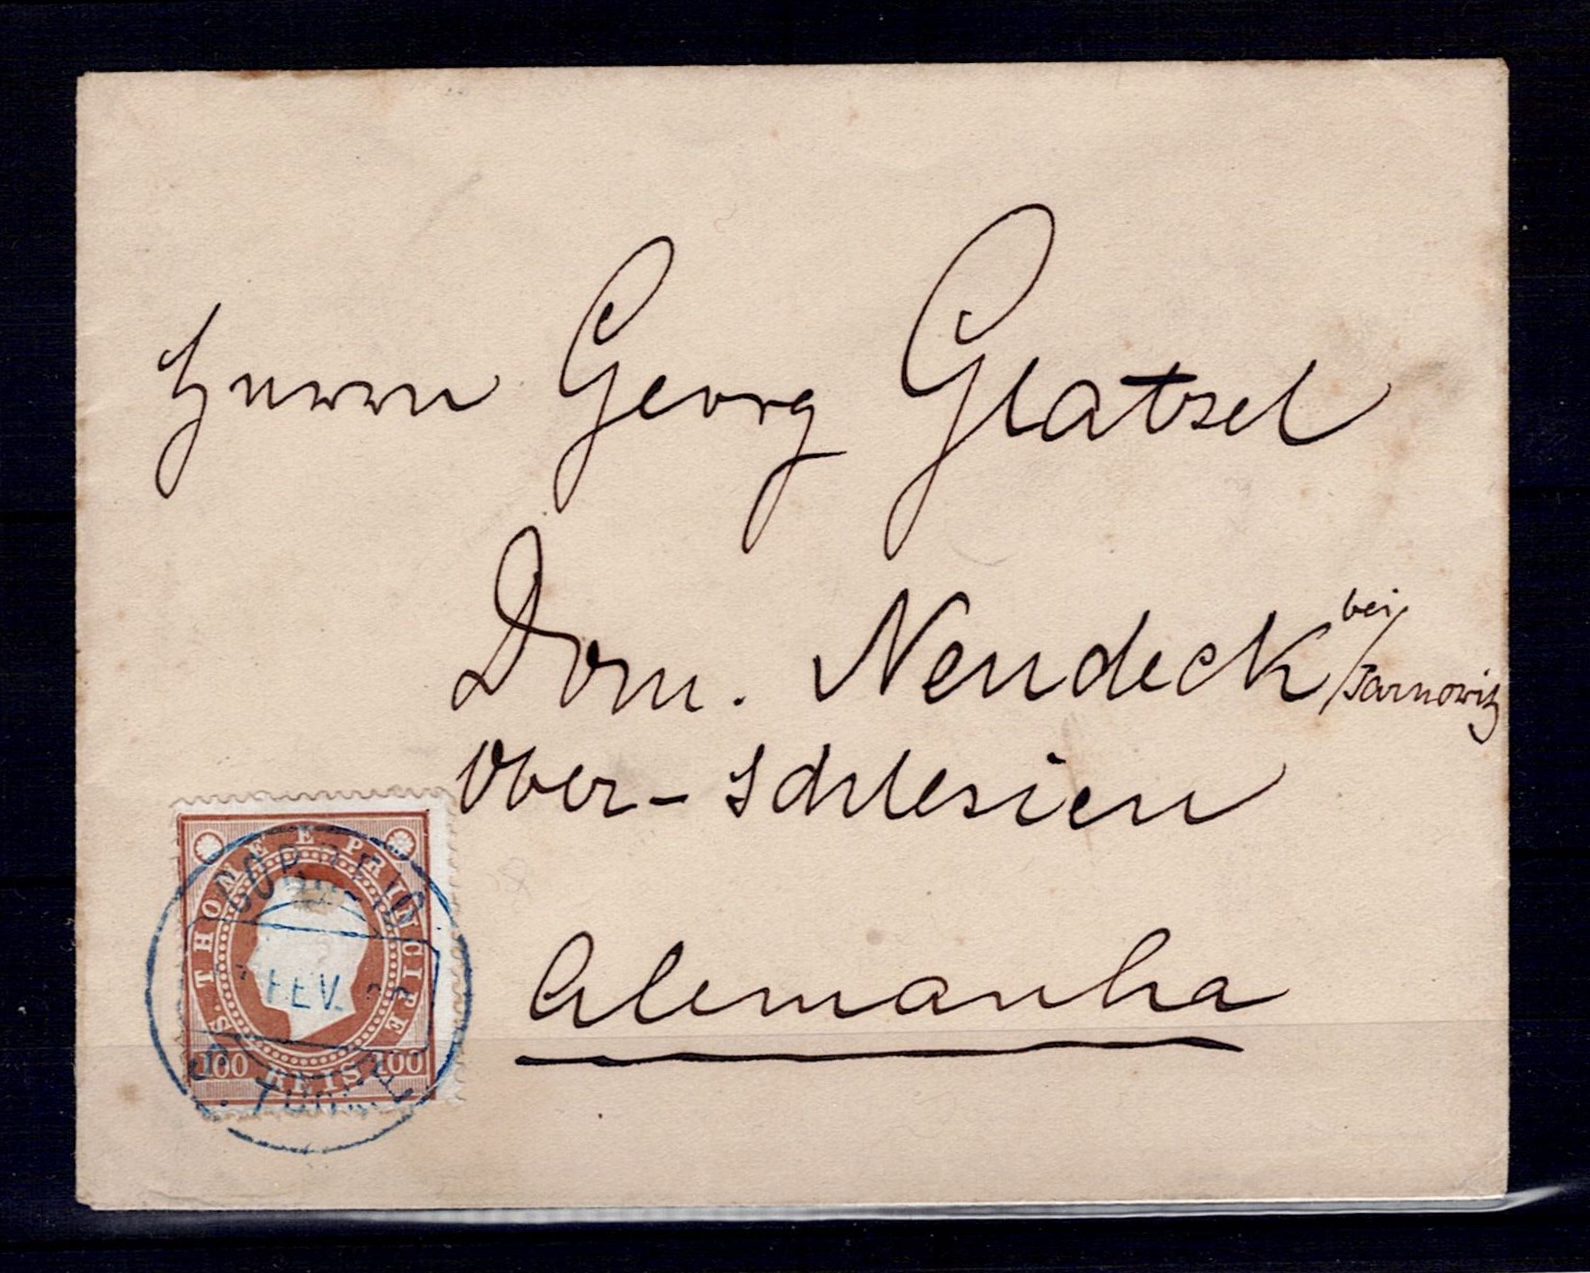 Herrn Georg Glatzel
Dom. Neudeck bei/Tarnowitz
Ober-Schlesien
Alemanha
S. THOMÉ E PRINCIPE
100 REIS 100
CORREIO
FEV.
S. THOMÉ